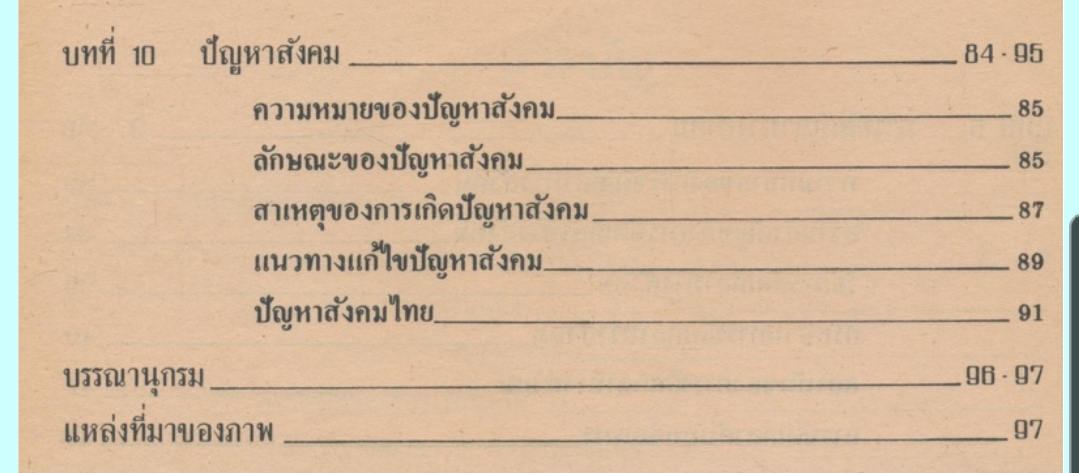 บทที่ 10 ปัญหาสังคม 84 - 95
ความหมายของปัญหาสังคม 85
ลักษณะของปัญหาสังคม 85
สาเหตุของการเกิดปัญหาสังคม 87
แนวทางแก้ไขปัญหาสังคม 89
ปัญหาสังคมไทย 91
บรรณานุกรม 96 - 97
แหล่งที่มาของภาพ 97